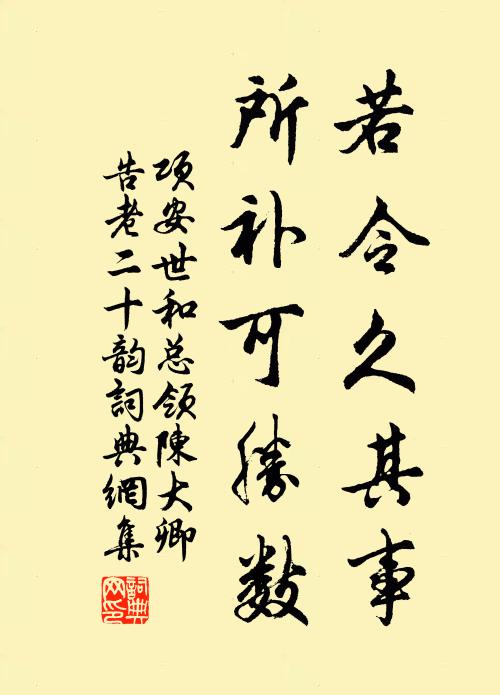 若令久其事
所补可勝数
项安世和总领陳大卿
告老二十韵詞典網集
詞典網印